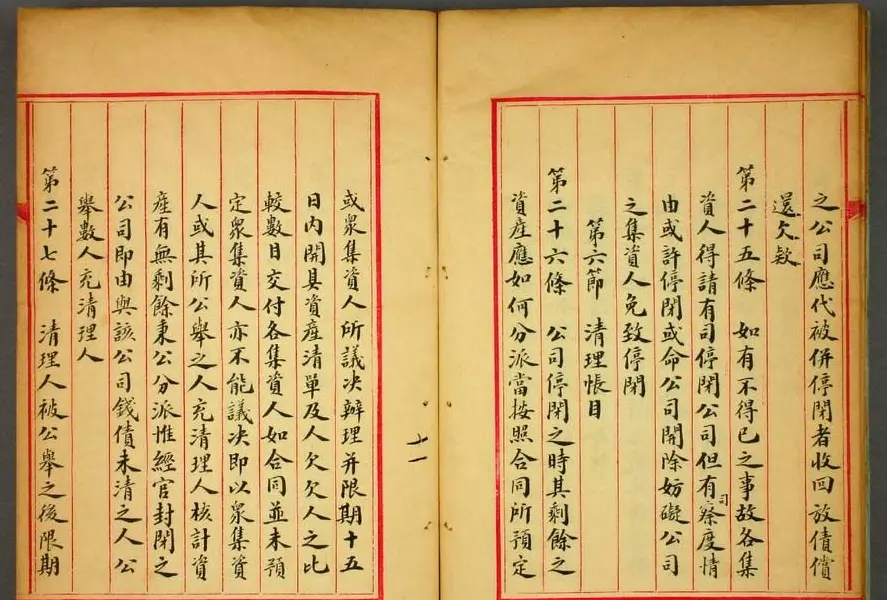 之公司應代被併停閉者收回放債償
還欠款
第二十五條 如有不得已之事故各集
資人得請有司停閉公司但有司察度情
由或許停閉或命公司開除妨礙公司
之集資人免致停閉
第六節 清理帳目
第二十六條 公司停閉之時其剩餘之
資產應如何分派當按照合同所預定
十一
或眾集資人所議決辦理并限期十五
日內開具資產清單及人欠欠人之比
較數目交付各集資人如合同並未預
定眾集資人亦不能議決即以眾集資
人或其所公舉之人充清理人核計資
產有無剩餘秉公分派惟經官封閉之
公司即由與該公司錢債未清之人公
舉數人充清理人
第二十七條 清理人被公舉之後限期